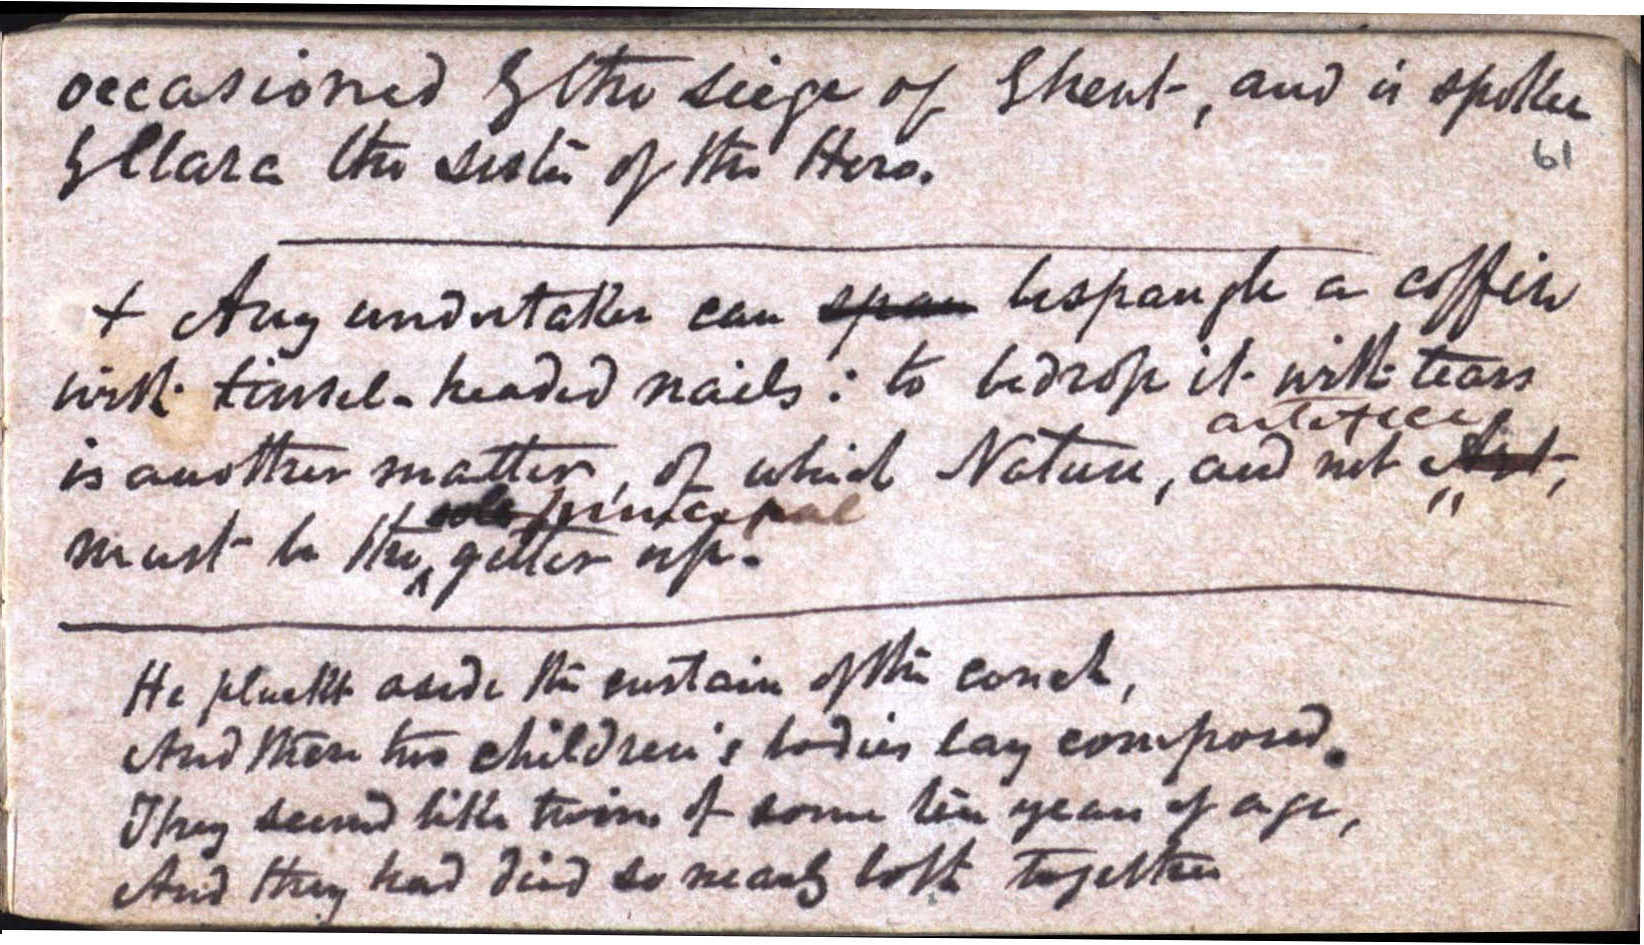 occasioned by the siege of Ghent, and is spoken
by Clara the sister of the Hero.
61
+ Any undertaker can span bespangle a coffin
with tinsel-headed nails: to bedrop it with tears
artifice
is another matter, of which Nature, and not Art,
sole principal
must be the getter up.
He pluckt aside the curtain of the couch,
And there two children's bodies lay composed.
They seemed like twins of some ten years of age,
And they had died so nearly both together